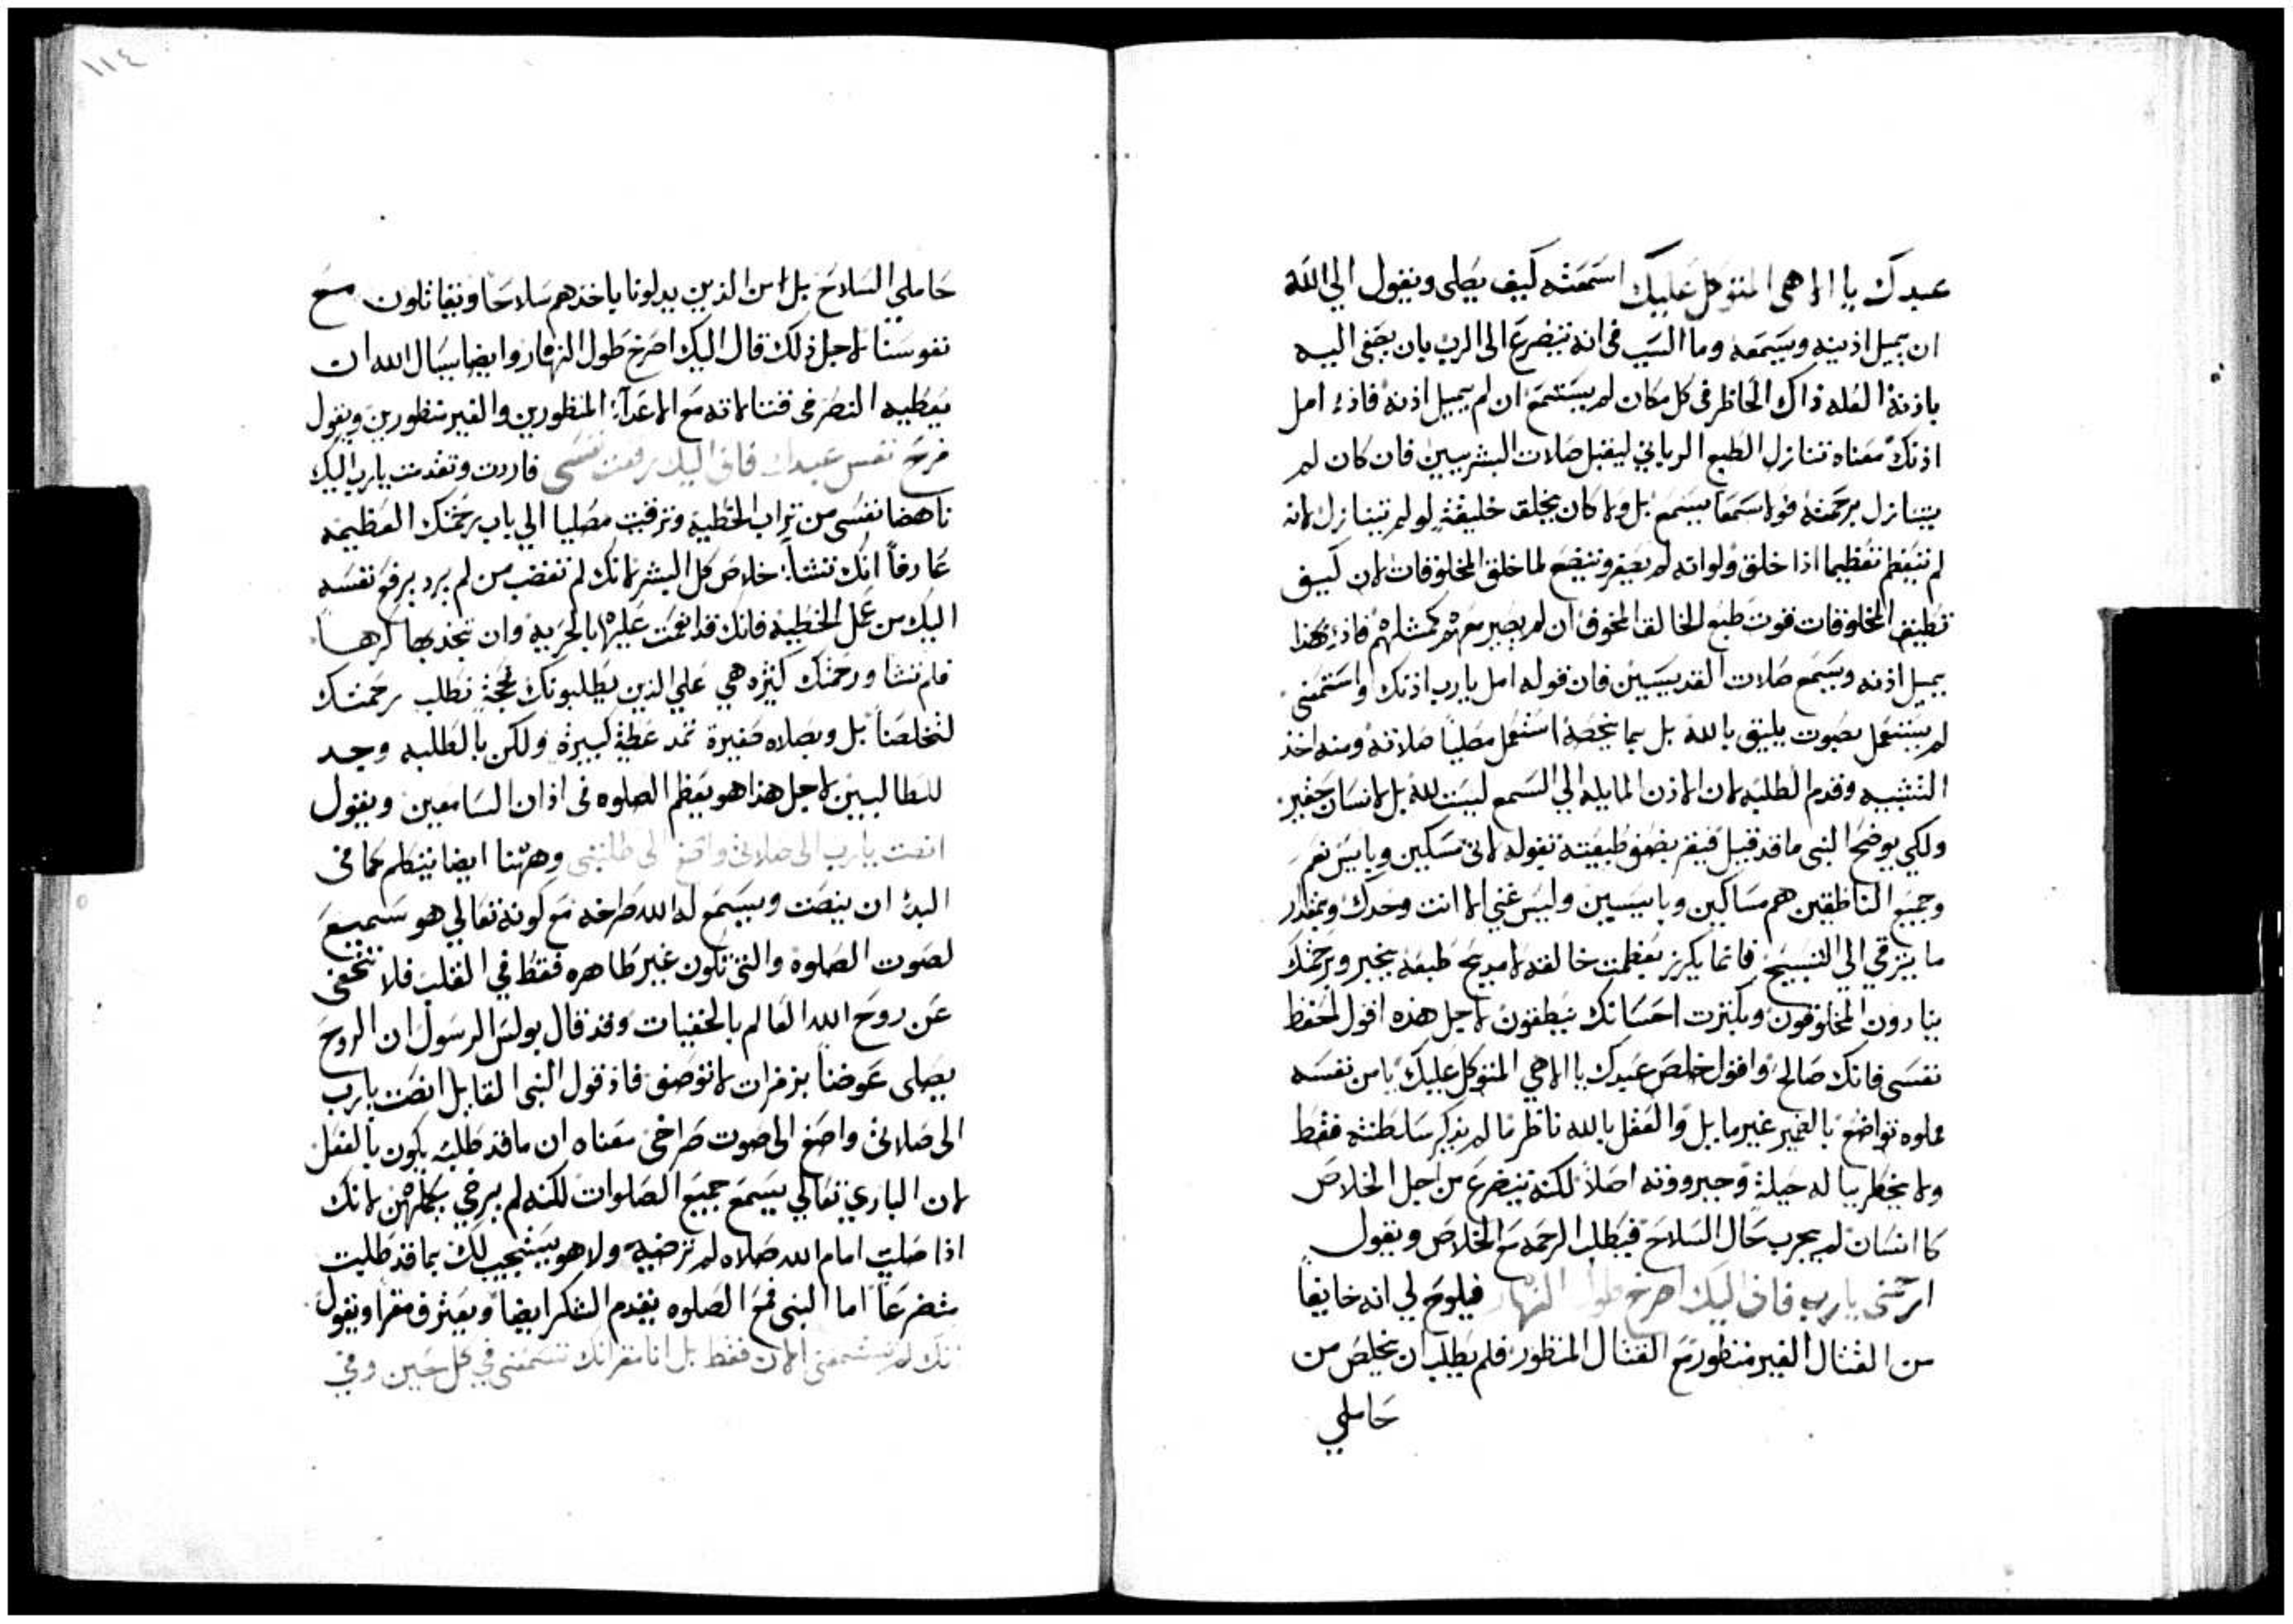 عبدك يا الاهي المتوكل عليك اسمعته كيف يصلي ويقول الي الله
ان يميل اذنيه ويسمعه وما السبب في انه يتضرع الى الرب بان يصغى اليه
باذنه العله ذاك الحاظر في كل مكان لم يستمع ان لم يميل اذنه فاذا امل
اذنك معناه تنازل الطبع الرباني ليقبل صلات البشريين فان كان لم
يتنازل برحمته فولا سمعا يسمع بل ولا كان يخلق خليقة لو لم يتنازل لانه
لم يتعظم تعظيما اذا خلق ولوانه لم يصغر ويتضع لما خلق المخلوقات لان كيف
تطيق المخلوقات قوت طبع الخالق المخوف ان لم يصير معهم كمثلهم فاذا هكذا
يميل اذنه ويسمع صلات القديسين فان قوله امل يا رب اذنك واستمعنى
لم يستعمل بصوت يليق بالله بل بما يخصه استعمل مصليا صلاته ومنه اخذ
التشبيه وقدم الطلبه لان الاذن المايله الي السمع ليست لله بل لانسان حقير
ولكي يوضح النبى ما قد قيل فيقر بضعف طبيعته بقوله لانى مسكين وبايس نعم
وجميع الناطقين هم مساكين وبايسيين وليس غني الا انت وحدك وبمقدار
ما يترقي الي التسبيح فانما يكرز بعظمت خالقه لا مديح طبعه بخير وبرحمتك
ينادون المخلوقون وبكترت احسانك ينطقون لاجل هذه اقول احفظ
نفسى فانك صالح واقول خلص عبدك يا الاهي المتوكل عليك يا من نفسه
مملوه تواضع بالضمير غير مايل والعقل بالله ناظر ما لم يذكر سلطنته فقط
ولا يخطر بباله حيلة وجبروته اصلا لكنه يتضرع من اجل الخلاص
كا انسان لم يجرب حال السلاح فيطلب الرحمه مع الخلاص ويقول
ارحمنى يا رب فانى اليك اصرخ طول النهار فيلوح لي انه خايفا
من القتال الغير منظور مع القتال المنظور فلم يطلب ان يخلص من
حاملي
١١٤
حاملي السلاح بل من الذين يبدلونا ياخذهم سلاحا ويقاتلون مع
نفوسنا لاجل ذلك قال اليك اصرخ طول النهار وايضا يسال الله ان
يعطيه النصر في قتالاته مع الاعدآء المنظورين والغير منظورين ويقول
فرح نفس عبدك فانى اليك رفعت نفسى فاردت وتقدمت يا رب اليك
ناهضا نفسى من تراب الخطية وترقيت مصليا الي باب رحمتك العظيمه
عارفا انك تشآء خلاص كل البشر لانك لم تغضب من لم يرد يرفع نفسه
اليك من عمل الخطيه فانك قد انعمت عليها بالحريه وان تجذبها كرها
فلم تشا ورحمتك كثيره هي علي الذين يطلبونك بحجة تطلب رحمتك
لتخلصنا بل وبصلاه صغيرة تمد عطية كبيرة ولكن بالطلبه وجد
للطالبين لاجل هذا هو يعظم الصلوه في اذان السامعين ويقول
انصت يا رب الى صلاتى واصغ الى طلبتى وههنا ايضا يتكلم كما فى
البدء ان ينصت ويسمع له الله صراخه مع كونه تعالي هو سميع
لصوت الصلوة والتى تكون غير ظاهره فقط في القلب فلا تختفى
عن روح الله العالم بالخفيات وقد قال بولس الرسول ان الروح
يصلى عوضنا بزفرات لا توصف فاذ قول النبى القايل انصت يا رب
الى صلاتى واصغ الى صوت صراخى معناه ان ما قد طلبه يكون بالفعل
لان الباري تعالي يسمع جميع الصلوات لكنه لم يرضي بكلهن لانك
اذا صليت امام الله صلاه لم ترضيه ولا هو يستجيب لك بما قد طلبت
متضرعا اما النبى فمع الصلوه يقدم الشكر ايضا ويعترف مقرا ويقول
انك لم تستمعنى الان فقط بل انا مقر انك تسمعنى في كل حين وفي